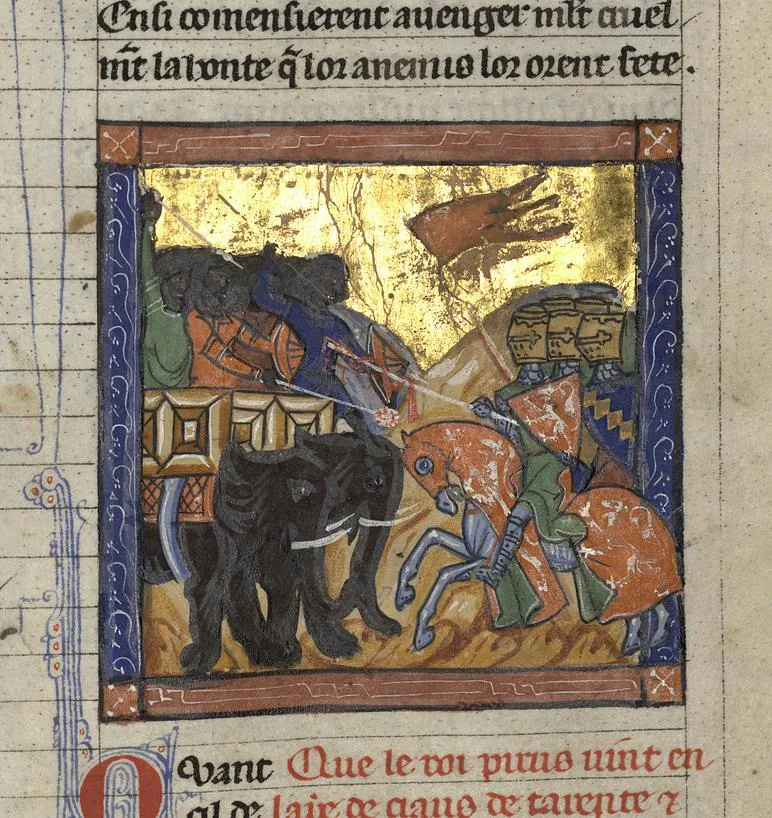 Ensi comensierent auenger mlt̃ cruel
mt̃ la bonte q̃ lor anemis lor orent fete.
Quant Que le roi pirus uint en
cil de laie de ciaus de tarente ⁊